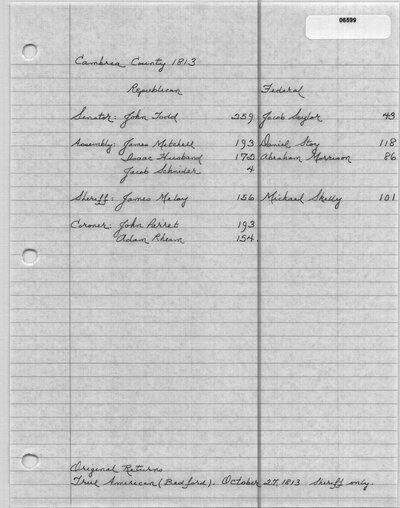 06599
Cambrea County 1813
Republican Federal
Senator: John Todd 259 Jacob Saylor 43
Assembly: James Metchell 193 Daniel Stoy 118
Isaac Husband 172 Abraham Morrison 86
Jacob Schnider 4
Sheriff: James Meloy 156 Michael Skelly 101
Coroner: John Parret 193
Adam Rheam 154.
Original Returns
True American (Bedford). October 27, 1813 Sheriff only.